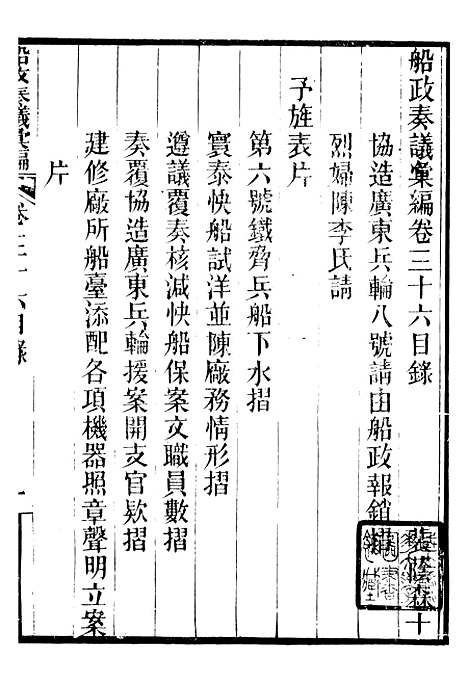 船政奏議彙編卷三十六目錄 裴蔭森十
協造廣東兵輪八號請由船政報銷摺
烈婦陳李氏請
予旌表片
第六號鐵脅兵船下水摺
寰泰快船試洋並陳廠務情形摺
遵議覆奏核減快船保案文職員數摺
奏覆協造廣東兵輪援案開支官欵摺
建修廠所船臺添配各項機器照章聲明立案
片
船政奏議彙編 卷三十六目錄 一